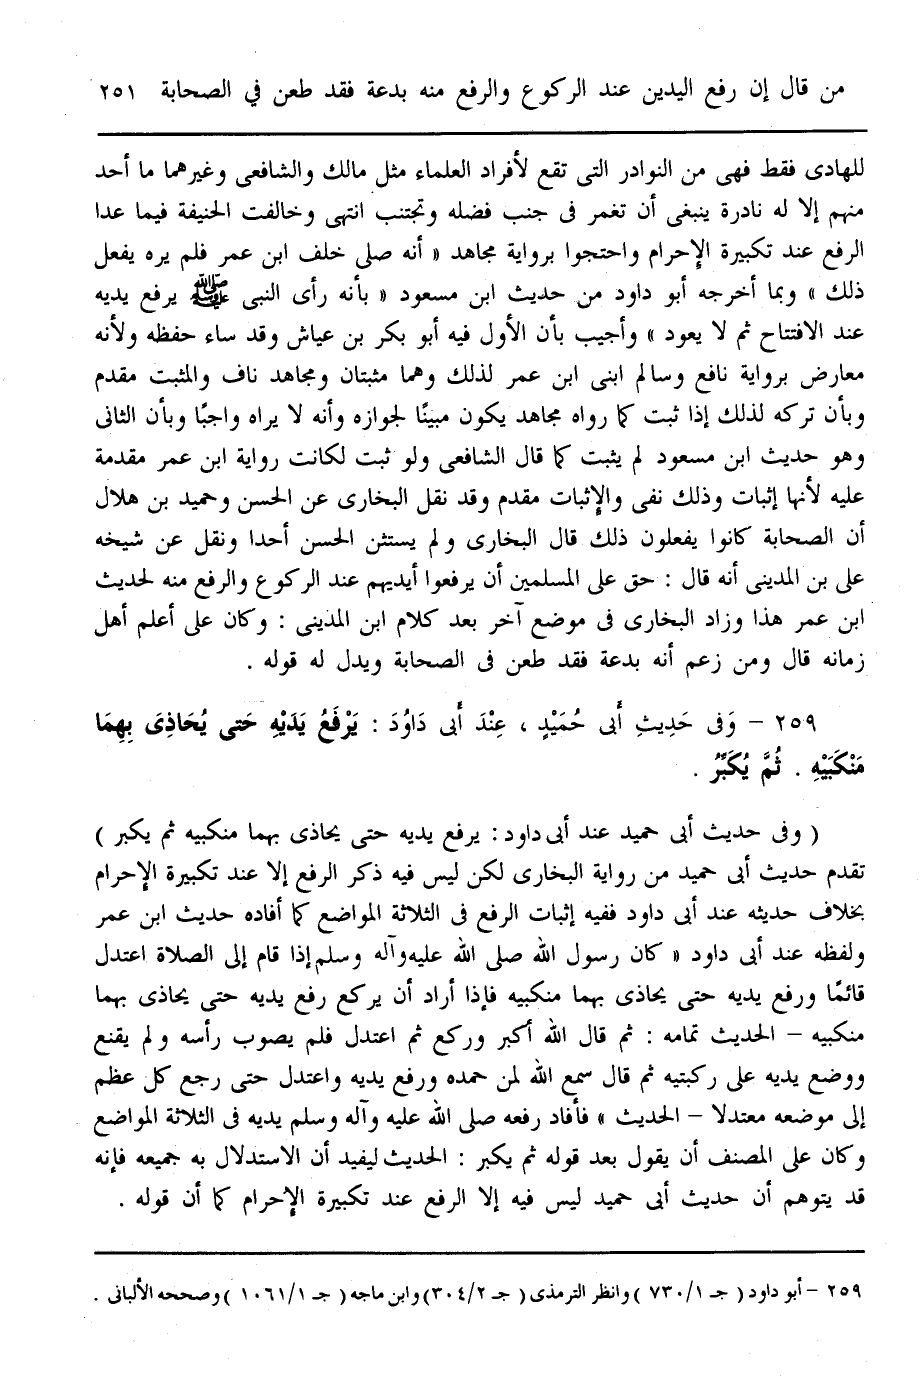 من قال إن رفع اليدين عند الركوع والرفع منه بدعة فقد طعن في الصحابة ٢٥١
للهادى فقط فهى من النوادر التى تقع لأفراد العلماء مثل مالك والشافعى وغيرهما ما أحد
منهم إلا له نادرة ينبغى أن تغمر فى جنب فضله وتجتنب انتهى وخالفت الحنيفة فيما عدا
الرفع عند تكبيرة الإحرام واحتجوا برواية مجاهد « أنه صلى خلف ابن عمر فلم يره يفعل
ذلك » وبما أخرجه أبو داود من حديث ابن مسعود « بأنه رأى النبى ﷺ يرفع يديه
عند الافتتاح ثم لا يعود » وأجيب بأن الأول فيه أبو بكر بن عياش وقد ساء حفظه ولأنه
معارض برواية نافع وسالم ابنى ابن عمر لذلك وهما مثبتان ومجاهد ناف والمثبت مقدم
وبأن تركه لذلك إذا ثبت كما رواه مجاهد يكون مبينًا لجوازه وأنه لا يراه واجبًا وبأن الثانى
وهو حديث ابن مسعود لم يثبت كما قال الشافعى ولو ثبت لكانت رواية ابن عمر مقدمة
عليه لأنها إثبات وذلك نفى والإثبات مقدم وقد نقل البخارى عن الحسن وحميد بن هلال
أن الصحابة كانوا يفعلون ذلك قال البخارى ولم يستثن الحسن أحدا ونقل عن شيخه
على بن المدينى أنه قال : حق على المسلمين أن يرفعوا أيديهم عند الركوع والرفع منه لحديث
ابن عمر هذا وزاد البخارى فى موضع آخر بعد كلام ابن المدينى : وكان على أعلم أهل
زمانه قال ومن زعم أنه بدعة فقد طعن فى الصحابة ويدل له قوله .
٢٥٩ – وَفى حَدِيثِ أَبى حُمَيْدٍ ، عِنْدَ أبى دَاوُدَ : يَرْفَعُ يَدَيْهِ حَتى يُحَاذِىَ بِهِمَا
مَنْكَبَيْهِ . ثُمَّ يُكَبِّرُ .
( وفى حديث أبى حميد عند أبى داود : يرفع يديه حتى يحاذى بهما منكبيه ثم يكبر )
تقدم حديث أبى حميد من رواية البخارى لكن ليس فيه ذكر الرفع إلا عند تكبيرة الإحرام
بخلاف حديثه عند أبى داود ففيه إثبات الرفع فى الثلاثة المواضع كما أفاده حديث ابن عمر
ولفظه عند أبى داود « كان رسول الله صلى الله عليه وآله وسلم إذا قام إلى الصلاة اعتدل
قائمًا ورفع يديه حتى يحاذى بهما منكبيه فإذا أراد أن يركع رفع يديه حتى يحاذى بهما
منكبيه – الحديث تمامه : ثم قال الله أكبر وركع ثم اعتدل فلم يصوب رأسه ولم يقنع
ووضع يديه على ركبتيه ثم قال سمع الله لمن حمده ورفع يديه واعتدل حتى رجع كل عظم
إلى موضعه معتدلا – الحديث » فأفاد رفعه صلى الله عليه وآله وسلم يديه فى الثلاثة المواضع
وكان على المصنف أن يقول بعد قوله ثم يكبر : الحديث ليفيد أن الاستدلال به جميعه فإنه
قد يتوهم أن حديث أبى حميد ليس فيه إلا الرفع عند تكبيرة الإحرام كما أن قوله .
٢٥٩ – أبو داود ( جـ ٧٣٠/١ ) وانظر الترمذى ( جـ ٣٠٤/٢) وابن ماجه ( جـ ١٠٦١/١ ) وصححه الألبانى .